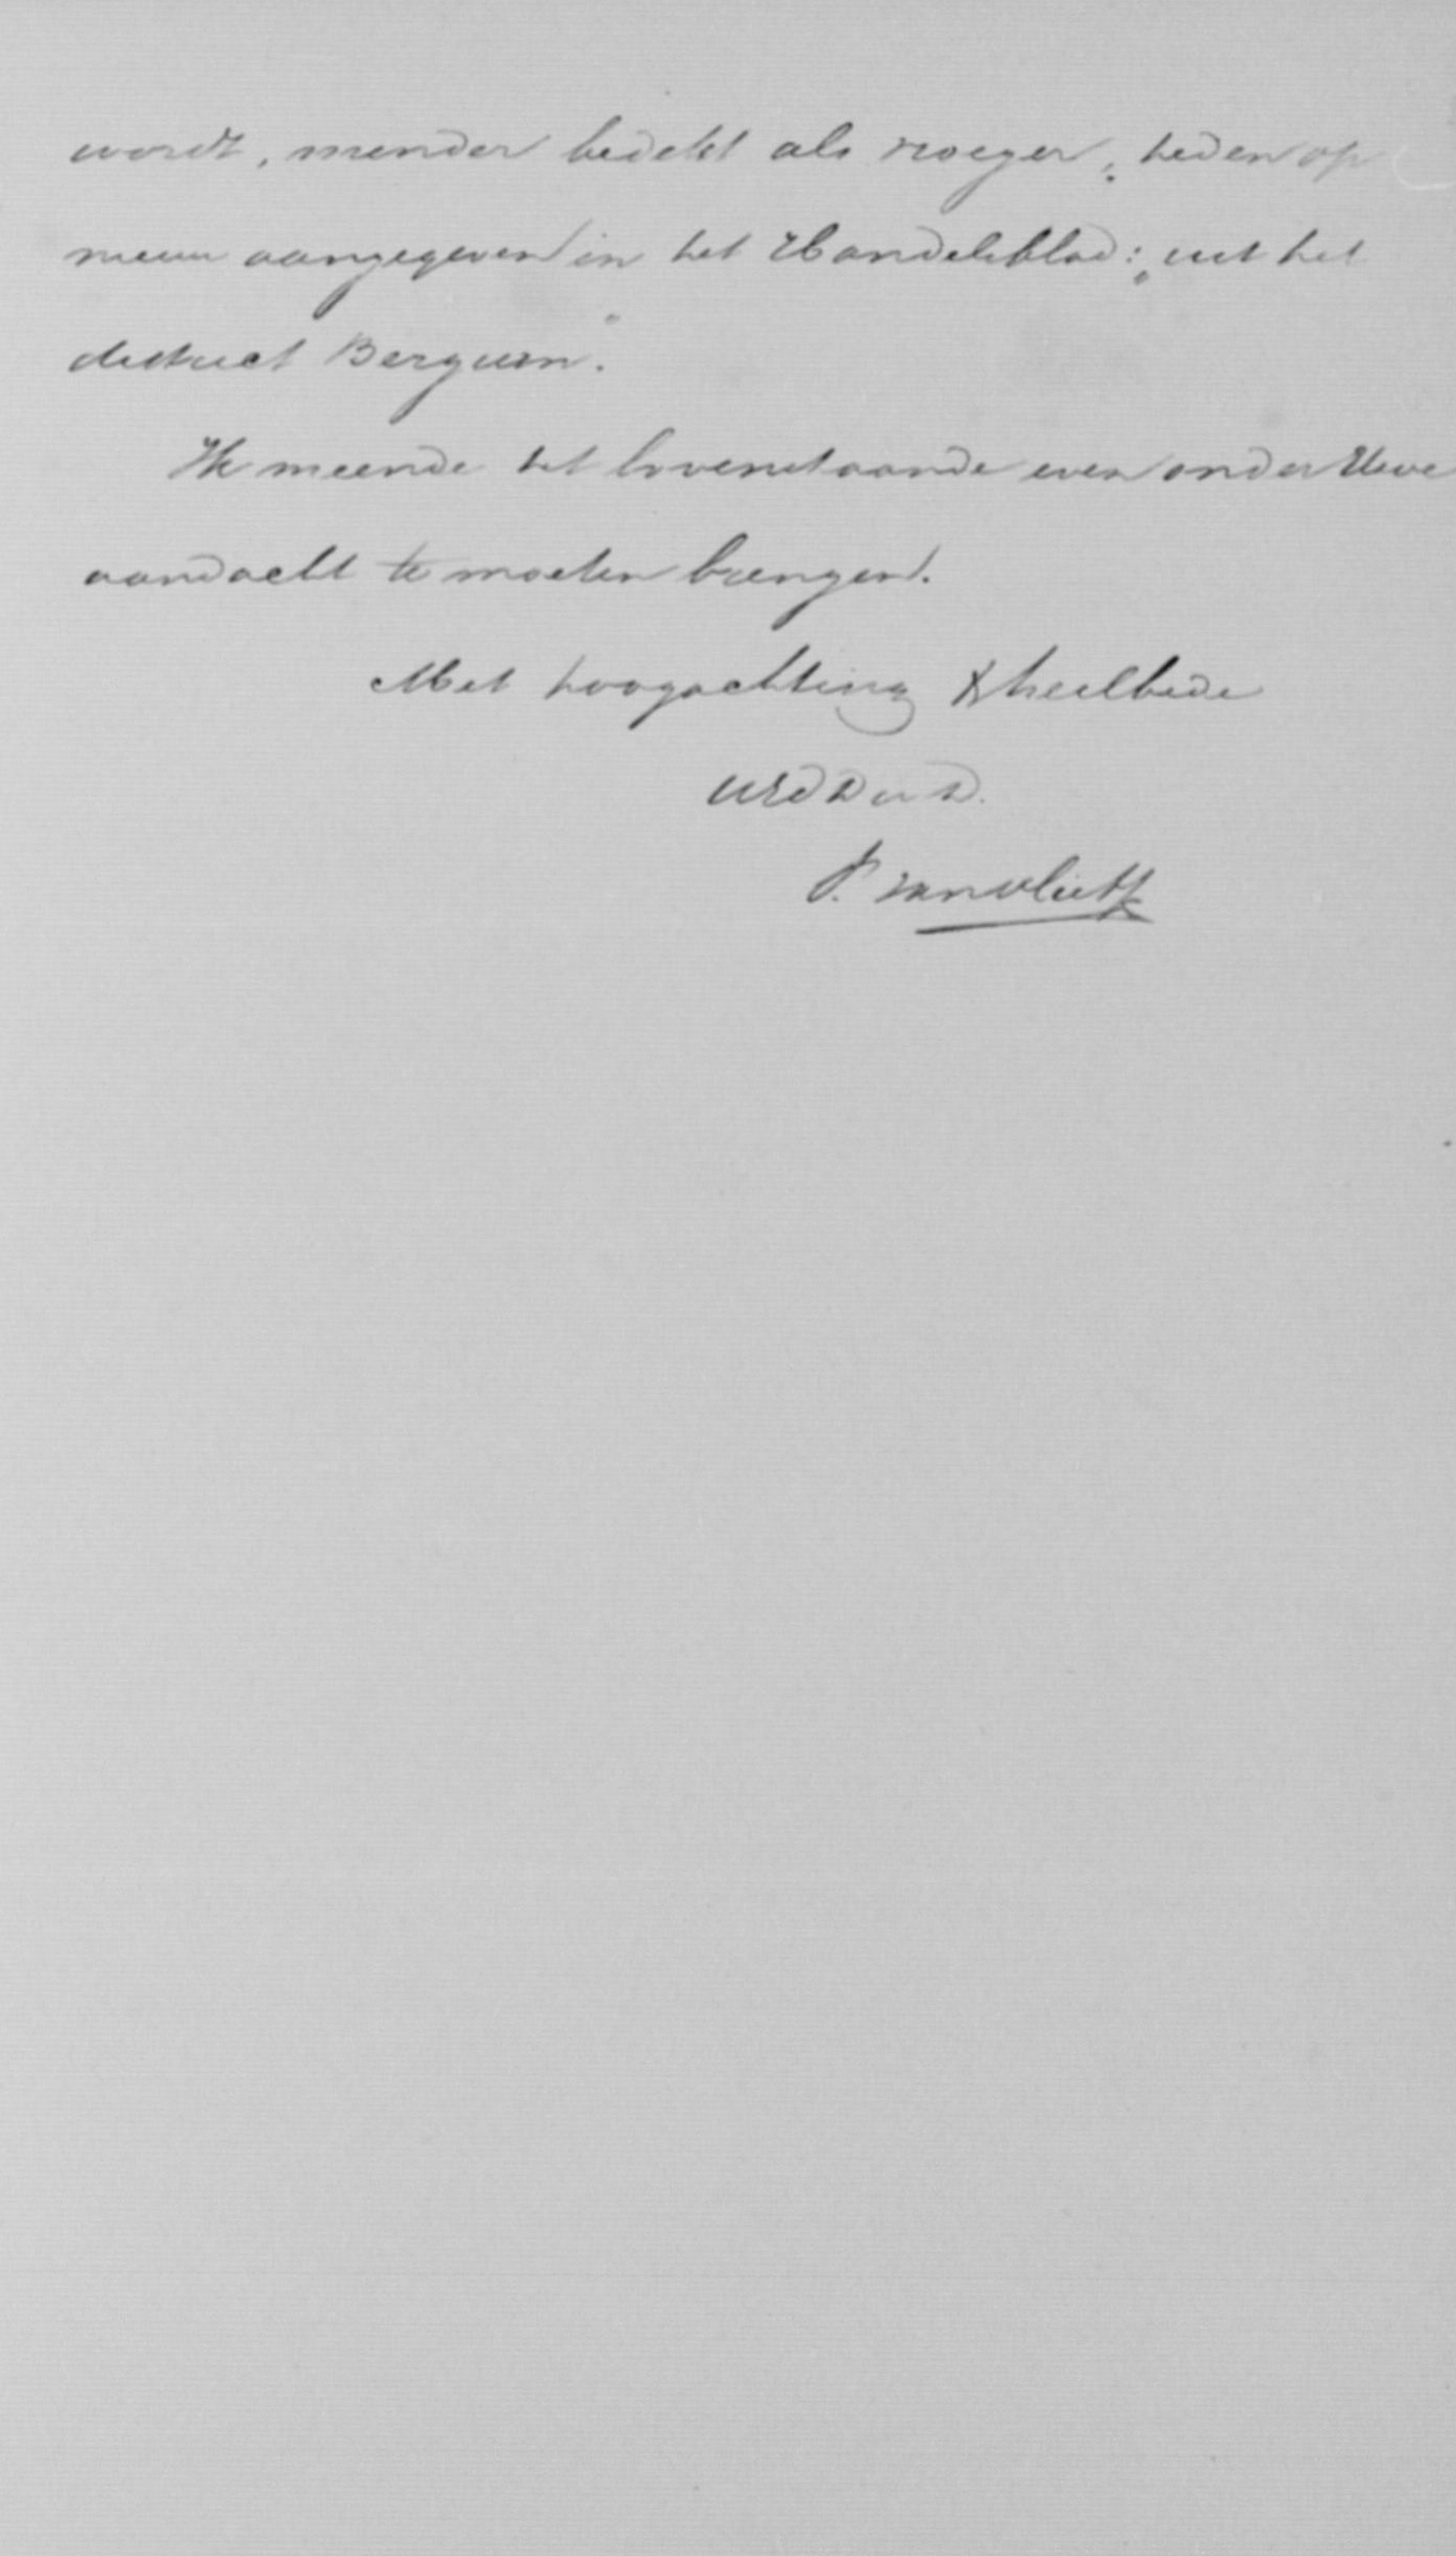 wordt, minder bedekt als vroeger, heden op
nieuw aangegeven in het Handelsblad: „uit het
district Bergum."
Ik meende het bovenstaande even onder Uwe
aandacht te moeten brengen.
Met hoogachting & heilbede
UEd Dw D.
P. van Vliet